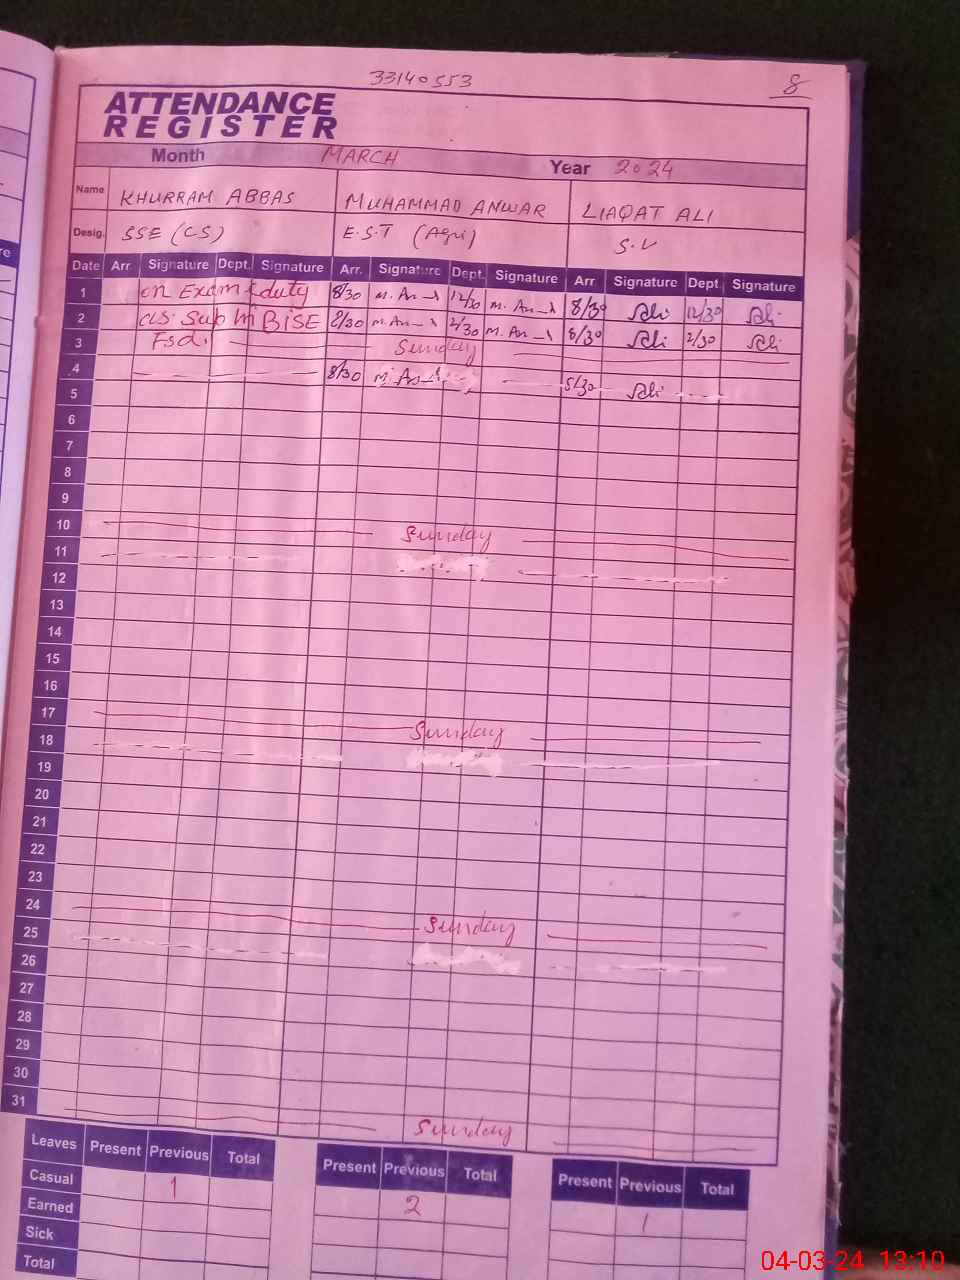 33140553
8
ATTENDANCE
REGISTER
Month MARCH Year 2024
Name KHURRAM ABBAS MUHAMMAD ANWAR LIAQAT ALI
Desig. SSE (CS) E.S.T (Agri) S.V
Date Arr. Signature Dept. Signature Arr. Signature Dept. Signature Arr Signature Dept Signature
1 on Exam duty 8/30 M. An 12/30 M. An 8/30 12/30
2 as Sub in BISE 8/30 M. An 2/30 M. An 8/30 2/30
3 Fsd. Sunday
4 8/30 M. An 8/30
5
6
7
8
9
10 Sunday
11
12
13
14
15
16
17 Sunday
18
19
20
21
22
23
24 Sunday
25
26
27
28
29
30
31 Sunday
Leaves Present Previous Total Present Previous Total Present Previous Total
Casual 1 2 1
Earned
Sick
Total
04-03-24 13:10